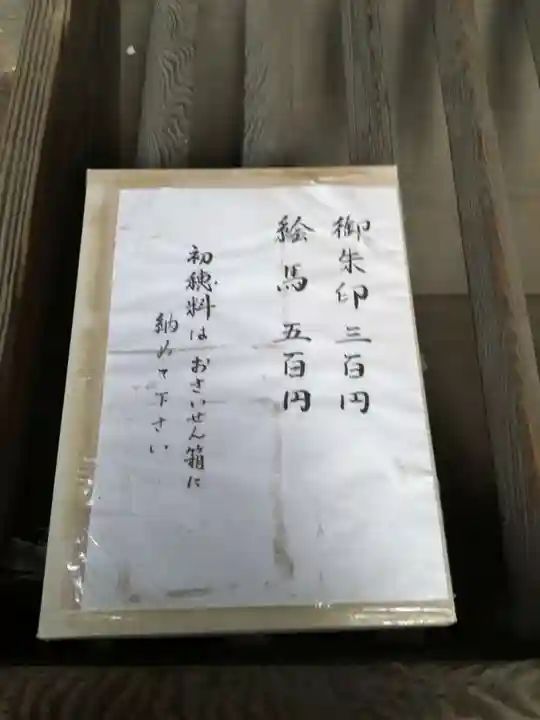 御朱印 三百円
絵馬 五百円
初穂料はおさいせん箱に
納めて下さい